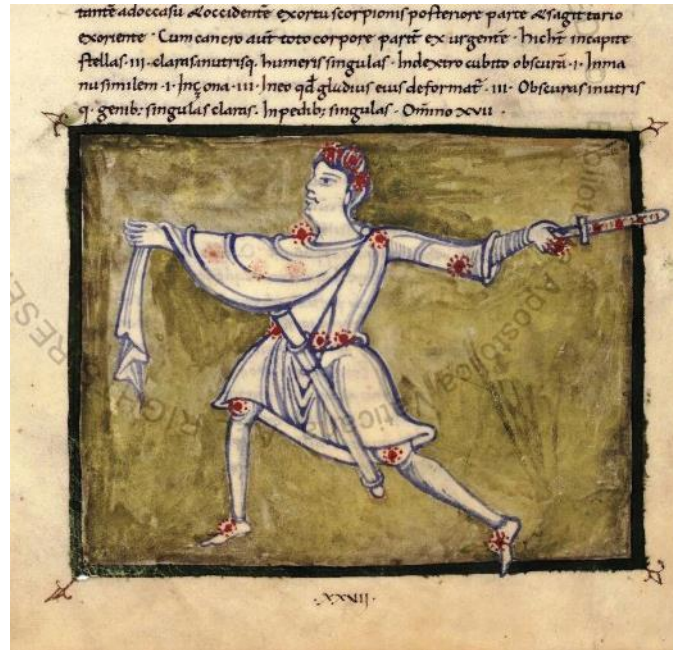 tantē adoccasu & occidentē exortu scorpionis posteriore parte & sagittario
exoriente · Cum cancro aut toto corpore parit ex urgente · hic ht̄ in capite
stellas · III · claras in utrisq. humeris singulas · In dextro cubito obscurā · I · In ma
nu similem · I · In çona · III · In eo qd̄ gladius eius deformat̄ · III · Obscuras in utris
q · genib; singulas claras. In pedib; singulas · Om̄ino XVII ·
Biblioteca Apostolica Vaticana
RIGHTS RESE
·XXXIII·